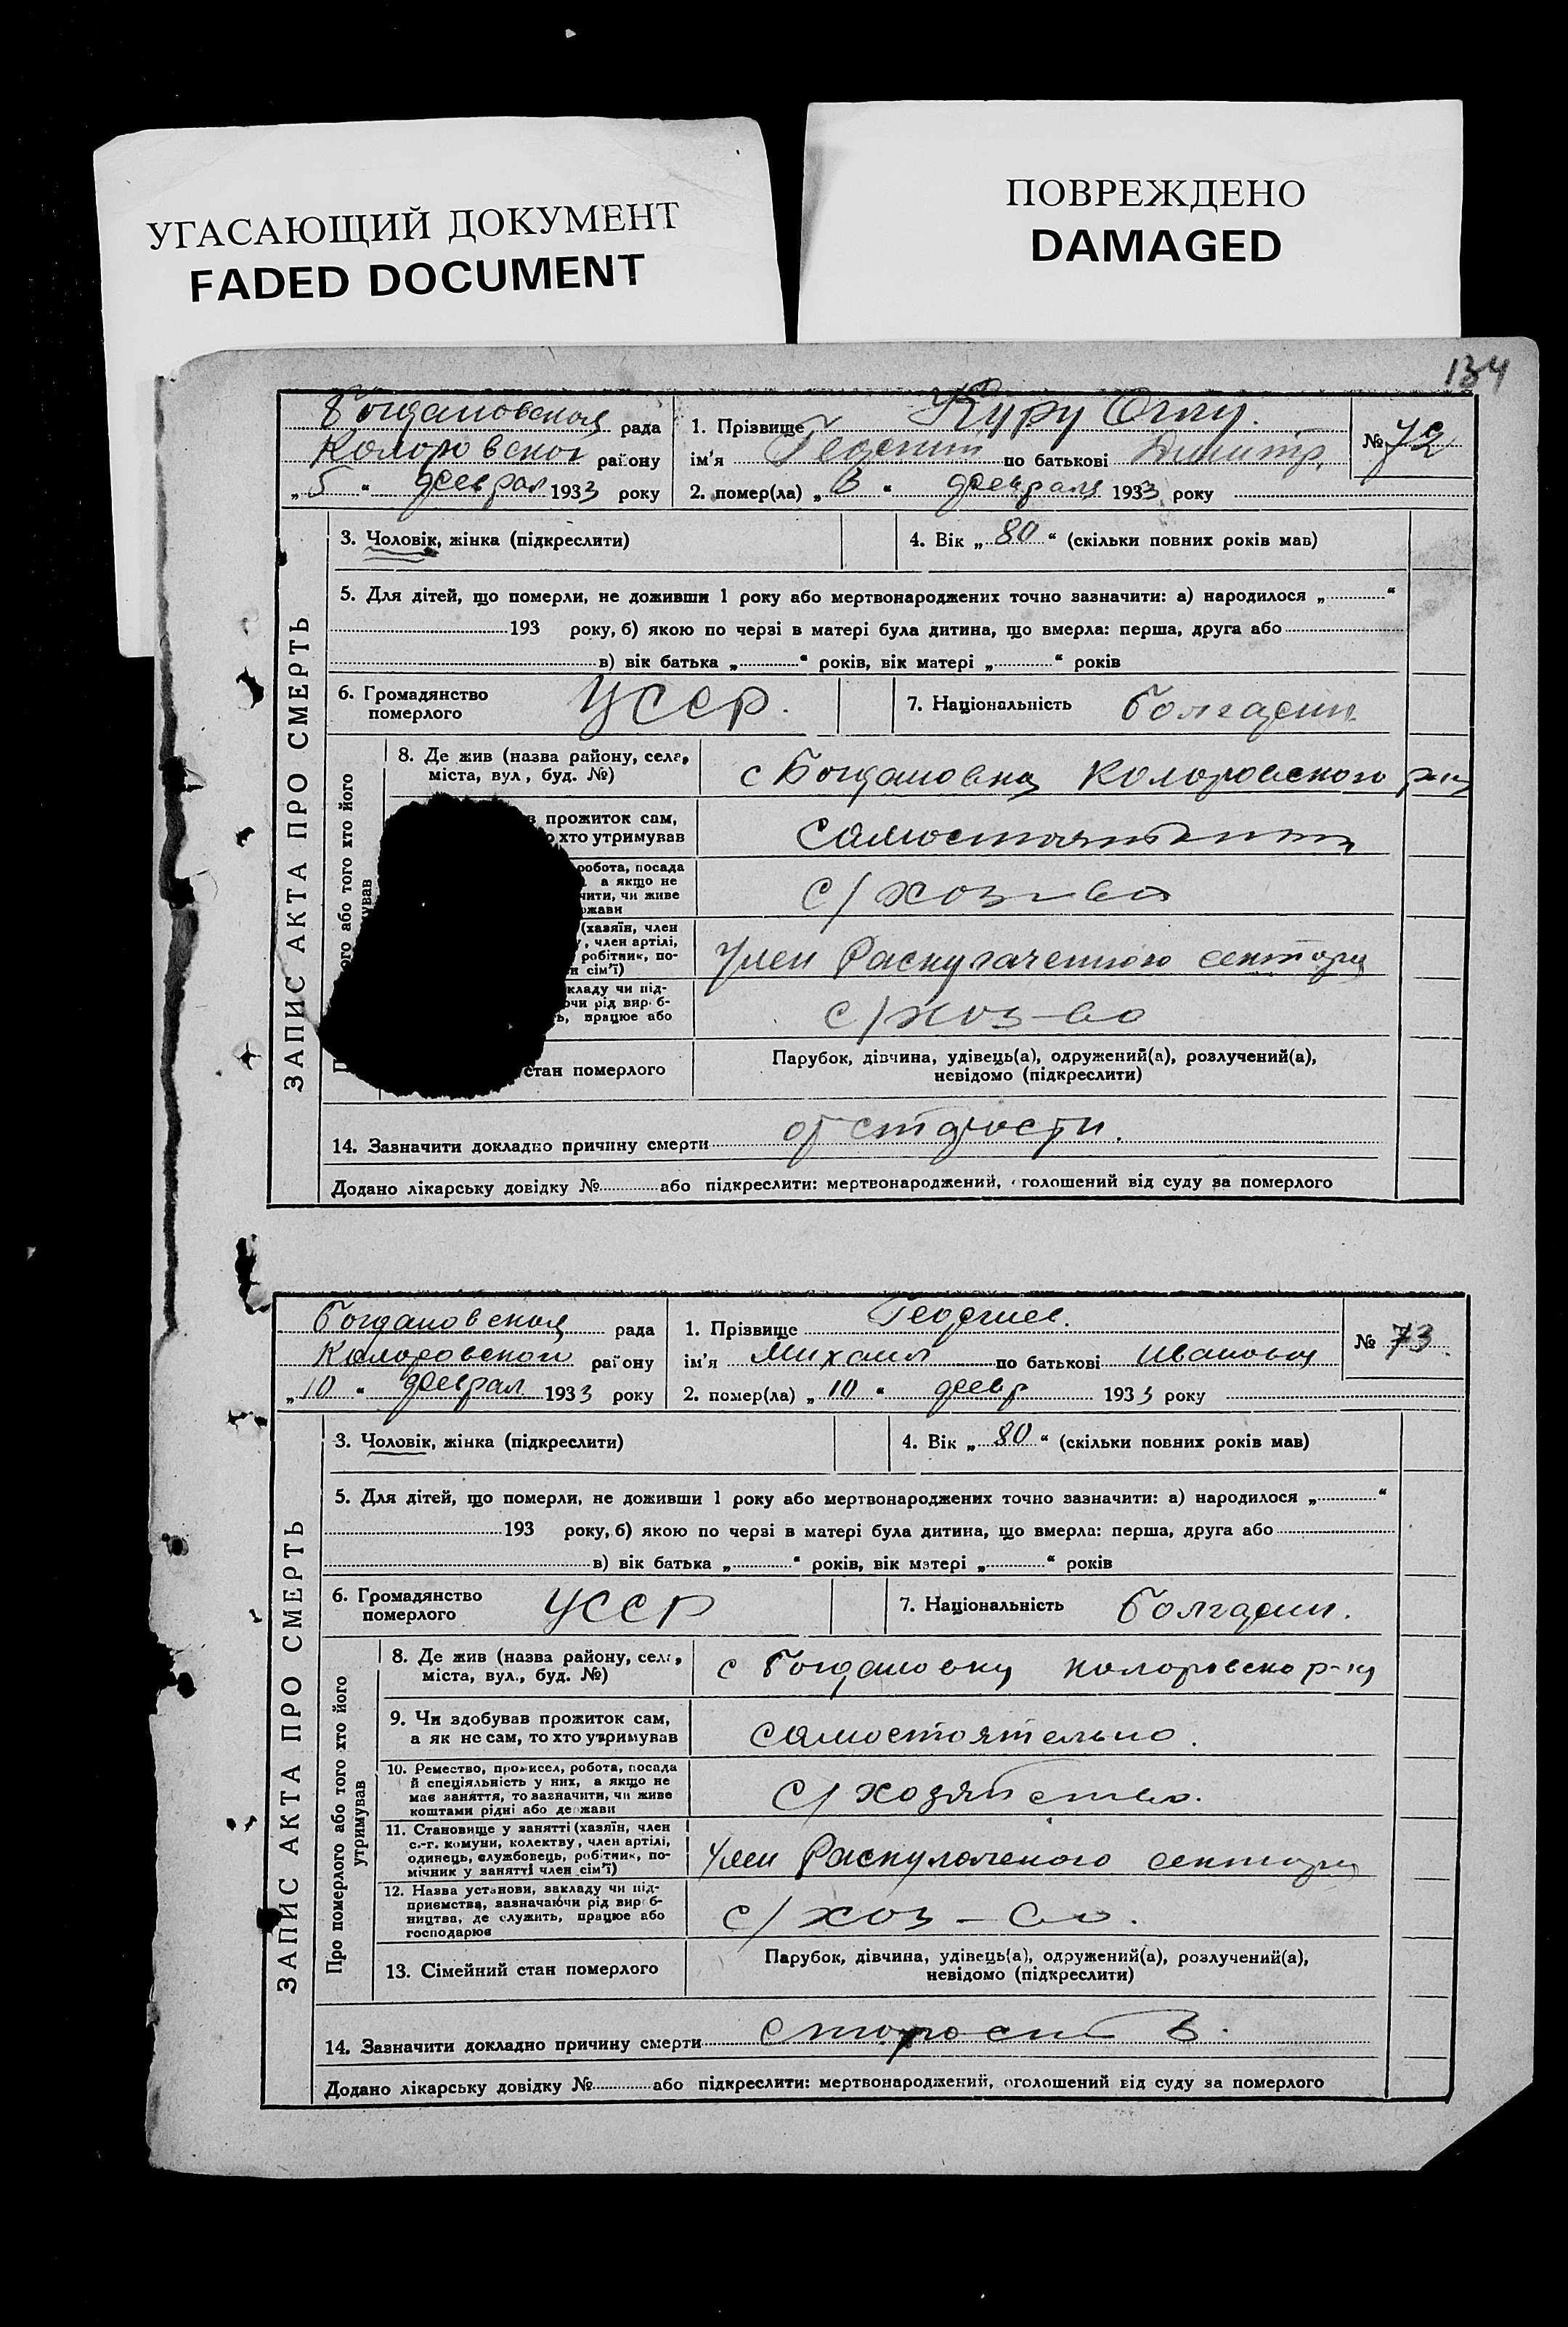 УГАСАЮЩИЙ ДОКУМЕНТ
FADED DOCUMENT
ПОВРЕЖДЕНО
DAMAGED
134
Богдановская рада
Коларовского району
„5“ феврал 1933 року
1. Прізвище Куру Оглу.
ім'я Георгий по батькові Димитр.
2. помер(ла) „3“ февраля 1933 року
№ 72
ЗАПИС АКТА ПРО СМЕРТЬ
3. Чоловік, жінка (підкреслити)
4. Вік „80“ (скільки повних років мав)
5. Для дітей, що померли, не доживши 1 року або мертвонароджених точно зазначити: а) народилося „ “
193 року, б) якою по черзі в матері була дитина, що вмерла: перша, друга або
в) вік батька „ “ років, вік матері „ “ років
6. Громадянство померлого УССР.
7. Національність болгарин
8. Де жив (назва району, села,
міста, вул, буд. №)
с Богдановка Коларовского р-на
прожиток сам,
хто утримував
самостоятельно
робота, посада
а якщо не
чити, чи живе
ржави
с/хоз-во
(хазяїн, член
, член артілі,
робітник, по-
сім'ї)
член Раскулаченного сектора
кладу чи під-
ючи рід вироб-
ь, працює або
с/хоз-во
стан померлого
Парубок, дівчина, удівець(а), одружений(а), розлучений(а),
невідомо (підкреслити)
14. Зазначити докладно причину смерти от старости.
Додано лікарську довідку № або підкреслити: мертвонароджений, оголошений від суду за померлого
Богдановская рада
Коларовского району
„10“ феврал 1933 року
1. Прізвище Георгиев.
ім'я Михаил по батькові Иванович
2. помер(ла) „10“ февр 1933 року
№ 73.
ЗАПИС АКТА ПРО СМЕРТЬ
3. Чоловік, жінка (підкреслити)
4. Вік „80“ (скільки повних років мав)
5. Для дітей, що померли, не доживши 1 року або мертвонароджених точно зазначити: а) народилося „ “
193 року, б) якою по черзі в матері була дитина, що вмерла: перша, друга або
в) вік батька „ “ років, вік матері „ “ років
6. Громадянство померлого УССР
7. Національність болгарин.
Про померлого або того хто його утримував
8. Де жив (назва району, села,
міста, вул., буд. №)
с Богдановку Коларовско р-ну
9. Чи здобував прожиток сам,
а як не сам, то хто утримував
самостоятельно.
10. Ремество, промисел, робота, посада
й спеціяльність у них, а якщо не
має заняття, то зазначити, чи живе
коштами рідні або держави
с/хозяйство.
11. Становище у занятті (хазяїн, член
с.-г. комуни, колектву, член артілі,
одинець, службовець, робітник, по-
мічник у занятті член сім'ї)
член Раскулаченого сектора
12. Назва установи, закладу чи під-
приємства, зазначаючи рід вироб-
ництва, де служить, працює або
господарює
с/хоз-во.
13. Сімейний стан померлого
Парубок, дівчина, удівець(а), одружений(а), розлучений(а),
невідомо (підкреслити)
14. Зазначити докладно причину смерти
Додано лікарську довідку № або підкреслити: мертвонароджений, оголошений від суду за померлого